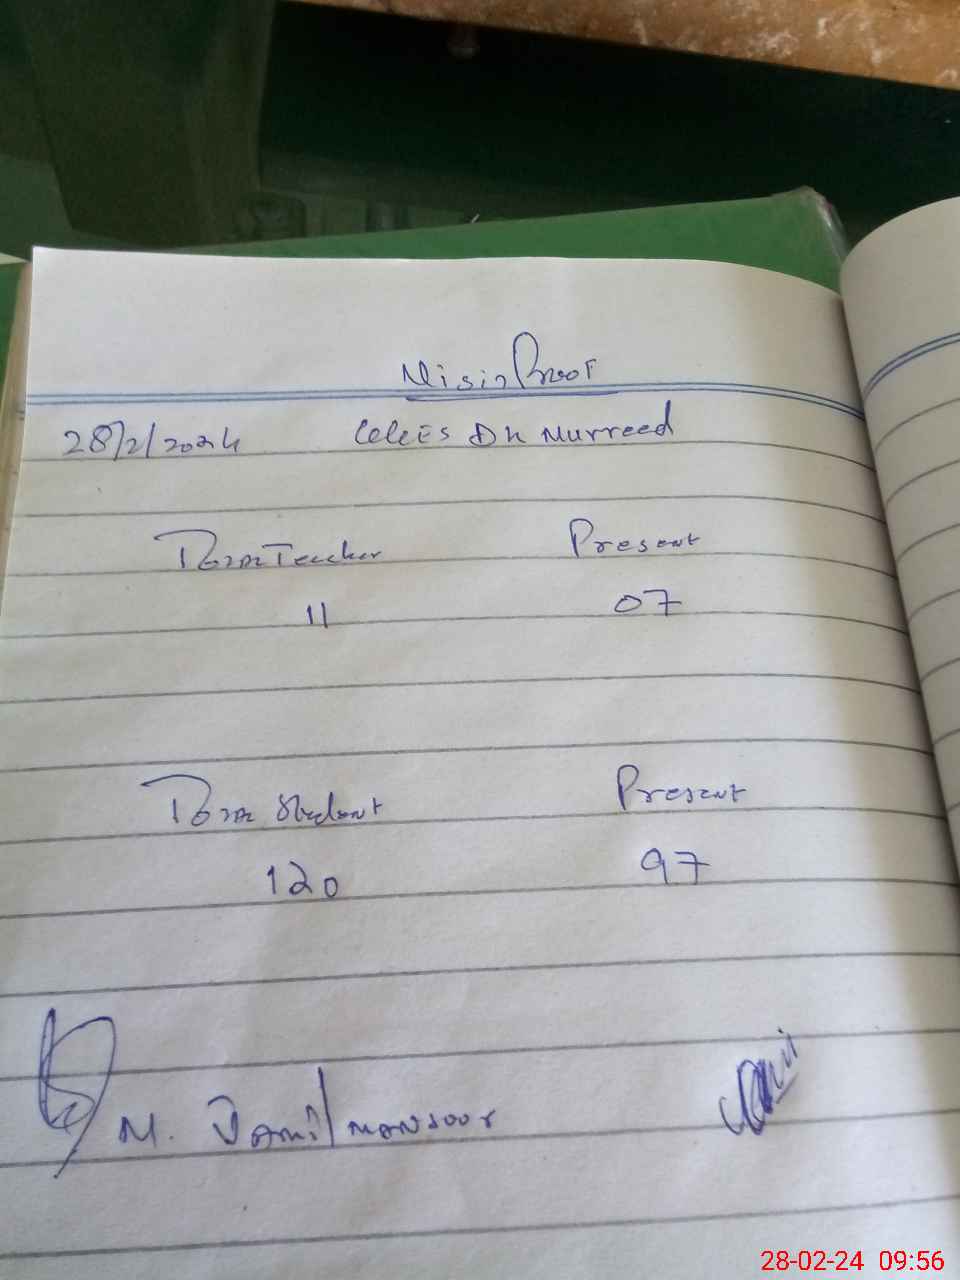 Visit Proof
28/2/2024 GGES Dh Murreed
Total Teacher Present
11 07
Total Student Present
120 97
M. Jamil mansoor
28-02-24 09:56